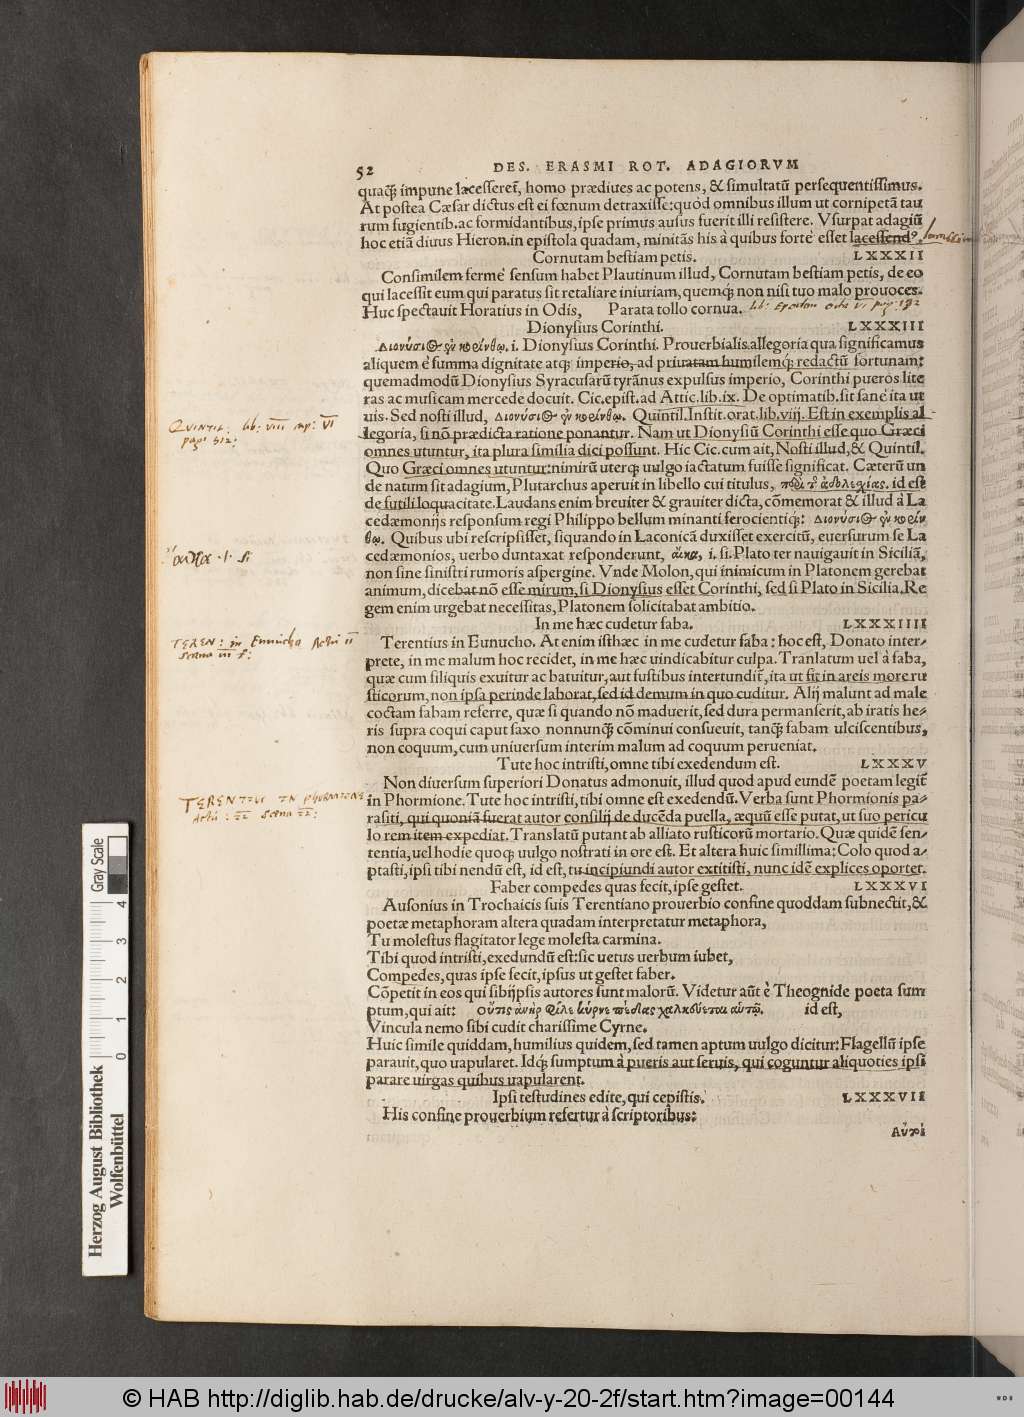 52 DES. ERASMI ROT. ADAGIORVM
quaꝗ̃ impune lacesseret̃, homo prædiues ac potens, & simultatũ persequentissimus.
At postea Cæsar dictus est ei fœnum detraxisse: quòd omnibus illum ut cornipetã tau
rum fugientib. ac formidantibus, ipse primus ausus fuerit illi resistere. Vsurpat adagiũ
hoc etiã diuus Hieron. in epistola quadam, minitãs his à quibus forte esset lacessendꝰ.
Cornutam bestiam petis. LXXXII
Consimilem ferme sensum habet Plautinum illud, Cornutam bestiam petis, de eo
qui lacessit eum qui paratus sit retaliare iniuriam, quemꝗ; non nisi tuo malo prouoces.
Huc spectauit Horatius in Odis, Parata tollo cornua.
Dionysius Corinthi. LXXXIII
Διονύσιος ἐν κορίνθῳ. i. Dionysius Corinthi. Prouerbialis allegoria qua significamus
aliquem è summa dignitate atꝗ; imperio, ad priuatam humilemꝗ; redactũ fortunam:
quemadmodũ Dionysius Syracusarũ tyrãnus expulsus imperio, Corinthi pueros lite
ras ac musicam mercede docuit. Cic. epist. ad Attic. lib. ix. De optimatib. sit sane ita ut
uis. Sed nosti illud, Διονύσιος ἐν κορίνθῳ. Quintil. Instit. orat. lib. viij. Est in exemplis al
legoria, si nõ prædicta ratione ponantur. Nam ut Dionysiũ Corinthi esse quo Græci
omnes utuntur, ita plura similia dici possunt. Hic Cic. cum ait, Nosti illud, & Quintil.
Quo Græci omnes utuntur: nimirũ uterꝗ; uulgo iactatum fuisse significat. Cæterũ un
de natum sit adagium, Plutarchus aperuit in libello cui titulus, περὶ τ̃ ἀδολεχίας. id est
de futili loquacitate. Laudans enim breuiter & grauiter dicta, cõmemorat & illud à La
cedæmonijs responsum regi Philippo bellum minanti ferocientiꝗ;: Διονύσιος ἐν κορίν
θῳ. Quibus ubi rescripsisset, siquando in Laconicã duxisset exercitũ, euersurum se La
cedæmonios, uerbo duntaxat responderunt, αἴκα, i. si. Plato ter nauigauit in Siciliã,
non sine sinistri rumoris aspergine. Vnde Molon, qui inimicum in Platonem gerebat
animum, dicebat nõ esse mirum, si Dionysius esset Corinthi, sed si Plato in Sicilia. Re
gem enim urgebat necessitas, Platonem solicitabat ambitio.
In me hæc cudetur faba. LXXXIIII
Terentius in Eunucho. At enim isthæc in me cudetur faba: hoc est, Donato inter-
prete, in me malum hoc recidet, in me hæc uindicabitur culpa. Tranlatum uel à faba,
quæ cum siliquis exuitur ac batuitur, aut fustibus intertundit̃, ita ut fit in areis more ru
sticorum, non ipsa perinde laborat, sed id demum in quo cuditur. Alij malunt ad male
coctam fabam referre, quæ si quando nõ maduerit, sed dura permanserit, ab iratis he-
ris supra coqui caput saxo nonnunꝗ̃ cõminui consueuit, tanꝗ̃ fabam ulciscentibus,
non coquum, cum uniuersum interim malum ad coquum perueniat.
Tute hoc intristi, omne tibi exedendum est. LXXXV
Non diuersum superiori Donatus admonuit, illud quod apud eundẽ poetam legit̃
in Phormione. Tute hoc intristi, tibi omne est exedendũ. Verba sunt Phormionis pa-
rasiti, qui quoniã fuerat autor consilij de ducẽda puella, æquũ esse putat, ut suo pericu
lo rem item expediat. Translatũ putant ab alliato rusticorũ mortario. Quæ quidẽ sen-
tentia, uel hodie quoꝗ; uulgo nostrati in ore est. Et altera huic simillima: Colo quod a-
ptasti, ipsi tibi nendũ est, id est, tu incipiundi autor extitisti, nunc idẽ explices oportet.
Faber compedes quas fecit, ipse gestet. LXXXVI
Ausonius in Trochaicis suis Terentiano prouerbio confine quoddam subnectit, &
poetæ metaphoram altera quadam interpretatur metaphora,
Tu molestus flagitator lege molesta carmina.
Tibi quod intristi, exedundũ est: sic uetus uerbum iubet,
Compedes, quas ipse fecit, ipsus ut gestet faber.
Cõpetit in eos qui sibijpsis autores sunt malorũ. Videtur aũt è Theognide poeta sum
ptum, qui ait: Οὔτις ἀνὴρ φίλε κύρνε πέδας χαλκεύεται αὐτῷ. id est,
Vincula nemo sibi cudit charissime Cyrne.
Huic simile quiddam, humilius quidem, sed tamen aptum uulgo dicitur: Flagellũ ipse
parauit, quo uapularet. Idꝗ; sumptum à pueris aut seruis, qui coguntur aliquoties ipsi
parare uirgas quibus uapularent.
Ipsi testudines edite, qui cepistis. LXXXVII
His confine prouerbium refertur à scriptoribus:
Αὐτοὶ
QUINTIL: lib: VIII cap: VI
pag: 312:
TEREN: in Eunucho Actu II
Scena III
TERENTIUS IN PHORMIONE
Actu: II Scena II:
Gray Scale
0 1 2 3 4
Herzog August Bibliothek
Wolfenbüttel
© HAB http://diglib.hab.de/drucke/alv-y-20-2f/start.htm?image=00144